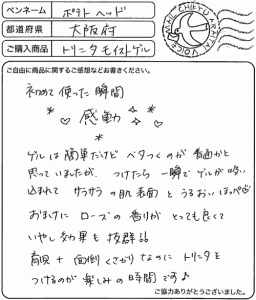 ペンネーム ポテトヘッド
都道府県 大阪府
ご購入商品 トリニタモイストゲル
MAIL CHIEYU ARATAI VOICE
ご自由に商品に関するご感想などお書きください。
初めて使った瞬間
感動
ゲルは簡単だけどベタつくのが普通かと
思っていましたが、つけたら一瞬でゲルが吸い
込まれてサラサラの肌表面とうるおいほっぺが
おまけにローズの香りがとっても良くて
いやし効果も抜群!!
育児+面倒くさがりなのにトリニタを
つけるのが楽しみの時間です♪
ご協力ありがとうございました。